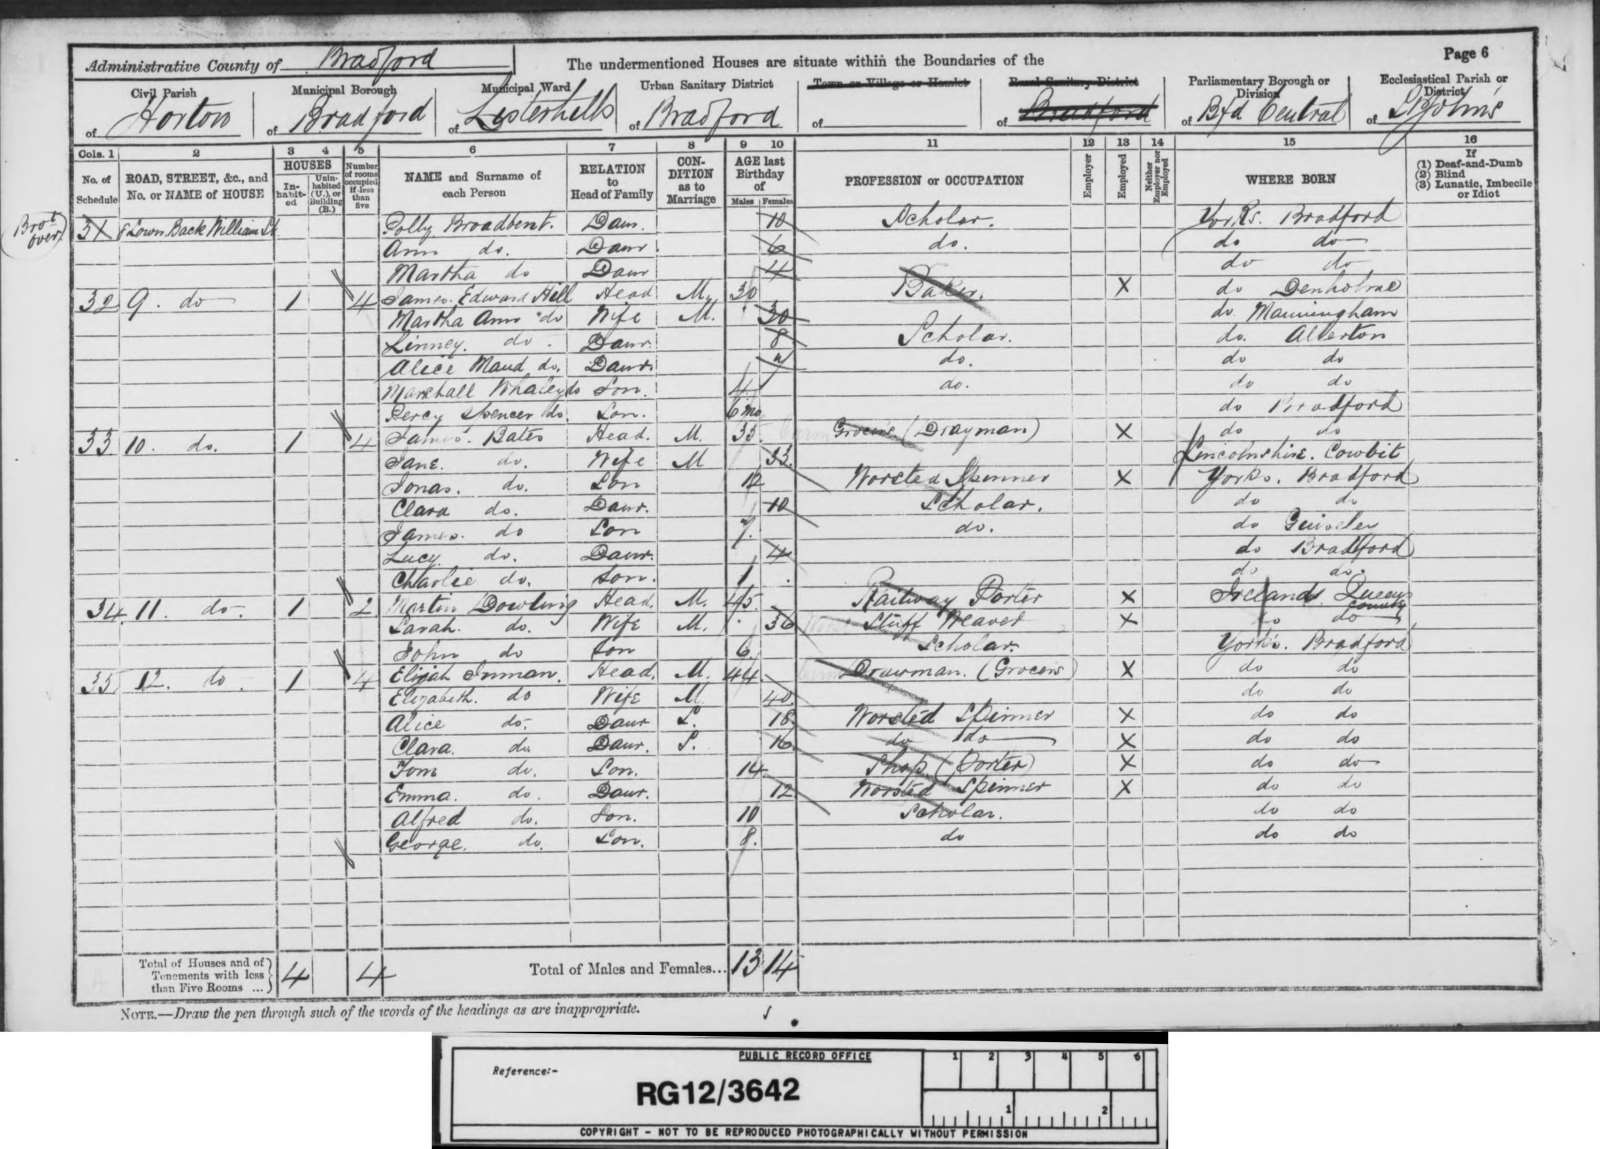 Page 6
Administrative County of Bradford The undermentioned Houses are situate within the Boundaries of the
Civil Parish Municipal Borough Municipal Ward Urban Sanitary District Town or Village or Hamlet Rural Sanitary District Parliamentary Borough or Division Ecclesiastical Parish or District
of Horton of Bradford of Listerhills of Bradford of of Bradford of Bfd Central of St John's
Cols. 1 2 3 4 5 6 7 8 9 10 11 12 13 14 15 16
No. of Schedule ROAD, STREET, &c., and No. or NAME of HOUSE HOUSES Inhabited Uninhabited (U.), or Building (B.) Number of rooms occupied if less than five NAME and Surname of each Person RELATION to Head of Family CONDITION as to Marriage AGE last Birthday of Males Females PROFESSION or OCCUPATION Employer Employed Neither Employer nor Employed WHERE BORN If (1) Deaf-and-Dumb (2) Blind (3) Lunatic, Imbecile or Idiot
Brot over
31 Back William St Polly Broadbent. Daur. 10 Scholar. Yorks. Bradford
Ann do. Daur 6 do. do do
Martha do Daur 4 do do
32 9. do 1 4 James Edward Hill Head M. 30 Baker. X do Denholme
Martha Ann do Wife M. 30 do Manningham
Linney. do. Daur. 8 Scholar. do. Allerton
Alice Maud do. Daur. do. do do
Marshall Whaley do Son. 4 do. do do
Percy Spencer do. Son. 6 mo do Bradford
33 10. do. 1 4 James. Bates Head. M. 35 Grocer (Drayman) X do do
Jane. do. Wife M 33 Lincolnshire. Cowbit
Jonas. do. Son 12 Worsted Spinner X Yorks. Bradford
Clara do. Daur. 10 Scholar. do do
James. do Son 7. do. do Guiseley
Lucy. do. Daur. 4 do Bradford
Charlie do. Son. 1 do do.
34. 11. do. 1 2 Martin Dowling Head. M. 45. Railway Porter X Ireland. Queens County
Sarah. do. Wife M. 36 Stuff Weaver X do do
John do Son 6 Scholar. Yorks. Bradford
35 12. do. 1 4 Elijah Inman. Head. M. 44 Drawman. (Grocers) X do do
Elizabeth. do Wife M 40. do do
Alice do. Daur S. 18 Worsted Spinner X do do
Clara. do Daur. S. 16 do do X do do
Tom do. Son. 14 Shop (Porter) X do do
Emma. do. Daur. 12 Worsted Spinner X do do
Alfred do. Son. 10 Scholar. do do
George. do. Son. 8. do do do
Total of Houses and of Tenements with less than Five Rooms ... 4 4 Total of Males and Females... 13 14
NOTE.—Draw the pen through such of the words of the headings as are inappropriate.
PUBLIC RECORD OFFICE 1 2 3 4 5 6
Reference:-
RG12/3642
1 2
COPYRIGHT - NOT TO BE REPRODUCED PHOTOGRAPHICALLY WITHOUT PERMISSION